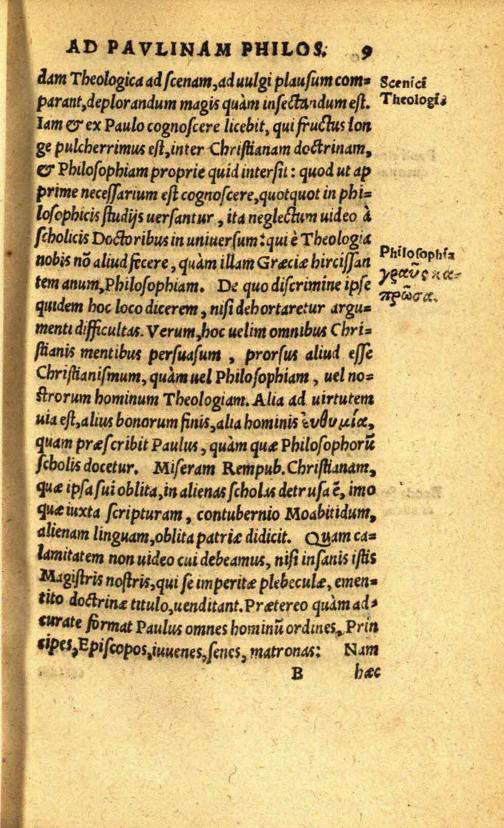 AD PAVLINAM PHILOS. 9
dam Theologica ad scenam, ad uulgi plausum com=
parant, deplorandum magis quàm insectandum est.
Iam & ex Paulo cognoscere licebit, qui fructus lon
ge pulcherrimus est, inter Christianam doctrinam,
& Philosophiam proprie quid intersit: quod ut ap
prime necessarium est cognoscere, quotquot in phi=
losophicis studijs uersantur, ita neglectum uideo à
scholicis Doctoribus in uniuersum: qui è Theologia
nobis nō aliud fecere, quàm illam Græciæ hircissan
tem anum, Philosophiam. De quo discrimine ipse
quidem hoc loco dicerem, nisi dehortaretur argu=
menti difficultas. Verum, hoc uelim omnibus Chri=
stianis mentibus persuasum, prorsus aliud esse
Christianismum, quàm uel Philosophiam, uel no=
strorum hominum Theologiam. Alia ad uirtutem
uia est, alius bonorum finis, alia hominis εὐθυμία,
quam præscribit Paulus, quàm quæ Philosophorū
scholis docetur. Miseram Rempub. Christianam,
quæ ipsa sui oblita, in alienas scholas detrusa ē, imo
quæ iuxta scripturam, contubernio Moabitidum,
alienam linguam, oblita patriæ didicit. Quam ca=
lamitatem non uideo cui debeamus, nisi insanis istis
Magistris nostris, qui se imperitæ plebeculæ, emen=
tito doctrinæ titulo, uenditant. Prætereo quàm ad=
curate format Paulus omnes hominū ordines, Prin
cipes, Episcopos, iuuenes, senes, matronas: Nam
B hæc
Scenici
Theologi
Philosophia
γραῦς κα=
πρῶσα.